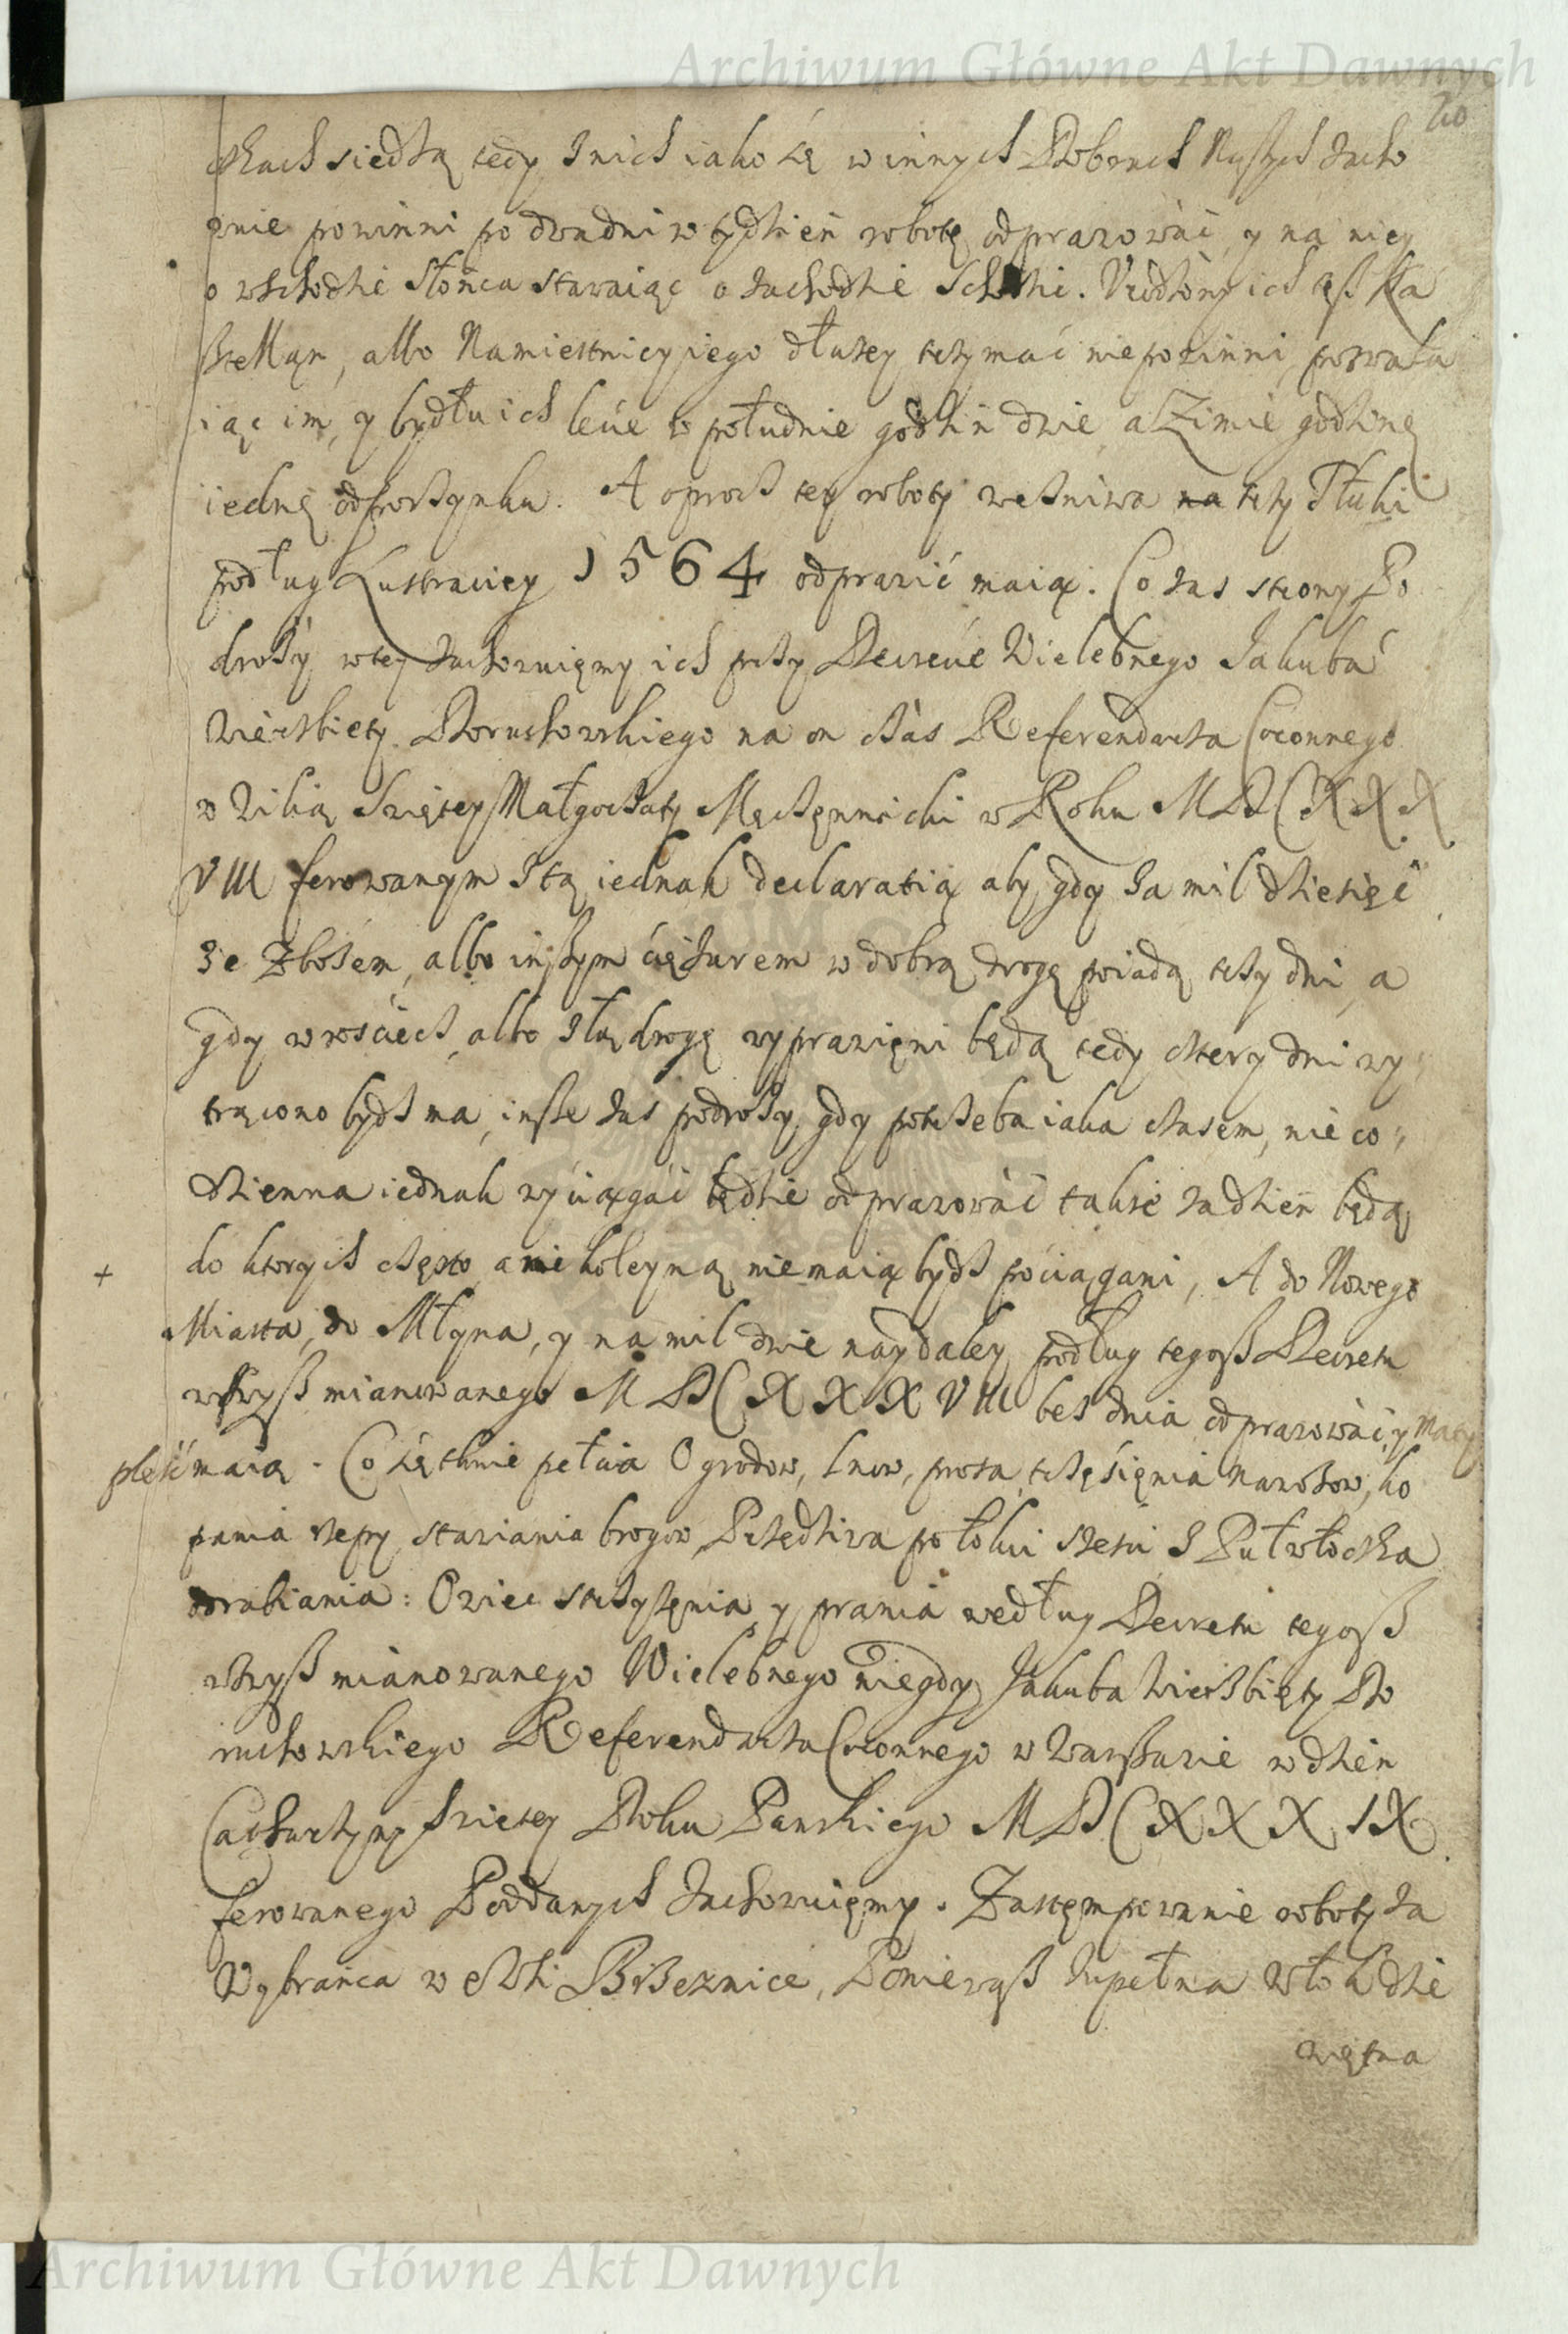 Archiwum Główne Akt Dawnych
20
siedzą tedy z nich iako tę w innych Dobrach Naszych zacho
wnie powinni po dwa dni w tydzień robotę odprawować, y na niey
o wschodzie słońca stawaiąc o zachodzie Schodzić. Vrodzony ich Ka
sztellan, albo Namiestnicy iego dłużey trzymać niepowinni, pozwala
iąc im, y bydłu ich lecie w południe godzin dwie, a Zimie godzinę
iednę odpoczynku. A oprocz tey roboty we żniwa trzy Tłuki
podług Lustraciey 1564 odprawić maią. Co zas strony Po
droży w tey zachowuięmy ich przy Decrecie Wielebnego Jakuba
Wierzbięty Doruchowskiego na on czas Referendarza Coronnego
w Wilią Swiętey Małgorzaty Męczęnnicki w Roku MDCXXX
VIII ferowanym z tą iednak declaratią aby gdy za mil dziesięć
ze Zbożem, albo inszym ciężarem w dobrą drogę poiadą trzy dni, a
gdy w rosciech, albo złą drogę wyprawięni będą tedy cztery dni wy
trącono bydź ma, insze zas podroży, gdy potrzeba iaka czasem, nie co
dzienna iednak wyciągać będzie odprawować także za dzień będą
do ktorych często, a nie koleyną nie maią bydź pociągani, A do Nowego
+
Miasta, do Młyna, y na mil dwie naydaley podług tegoż Decretu
wzwyż mianowanego MDCXXXVIII bez dnia odprawować, y Maty
pleść maią. Co się tknie pełcia Ogrodow, lnow, prosa, trzęsięnia nawozow, ko
pania rzepy, stawiania brogow, Przędziwa po łokci sześci z Puł włoczka
odrabiania: Owiec strzyżęnia, y prania według Decretu tegoż
wzwyż mianowanego Wielebnego niegdy Jakuba Wierzbięty Do
ruchowskiego Referendarza Coronnego w Warszawie w dzień
Catharzyny Swiętey Roku Pańskiego MDCXXXIX
ferowanego Poddanych zachowuięmy. Zastęmpowanie roboty za
Wybrańca w eWsi Brzeznice, Ponieważ zupełna Włok dzie
więtna
Archiwum Główne Akt Dawnych